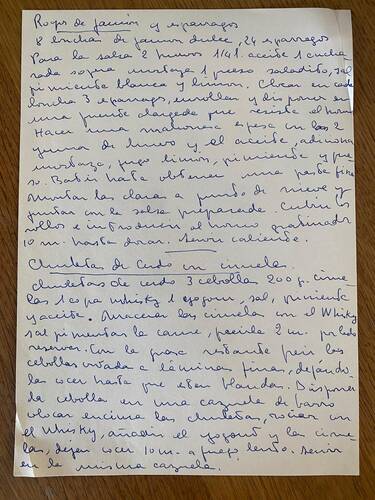 Rollos de jamón y esparragos
8 lonchas de jamon dulce, 24 esparragos
Para la salsa 2 huevos 1/4 l. aceite 1 cucha
rada sopera mostaza 1 queso saladito, sal
pimienta blanca y limon. Colocar en cada
loncha 3 esparragos, enrollar y disponer en
una fuente alargada que resista el horno
Hacer una mahonesa espesa con las 2
yemas de huevo y el aceite, adicionar
mostaza, jugo limon, pimienta y que
so. Batir hasta obtener una pasta fina
Montar las claras a punto de nieve y
juntar con la salsa preparada. Cubrir los
rollos e introducir al horno gratinador
10 m. hasta dorar. Servir caliente.
Chuletas de Cerdo con ciruelas
chuletas de cerdo 3 cebollas 200 g. cirue
las 1 copa Whisky 1 yogourt, sal, pimienta
y aceite. Macerar las ciruelas con el Whisky
salpimentar la carne, freirla 2 m. por lado
reservar. Con la grasa restante freir las
cebollas cortada a láminas finas, dejándo
las cocer hasta que esten blandas. Disponer
la cebolla en una cazuela de barro
colocar encima las chuletas, rociar con
el Whisky, añadir el yogourt y las cirue
las, dejar cocer 10 m. a fuego lento. Servir
en la misma cazuela.